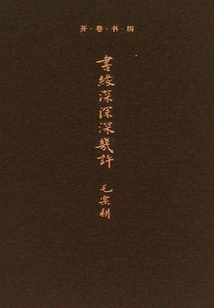 开·卷·书·坊
書緣深深深幾許
毛樂耕